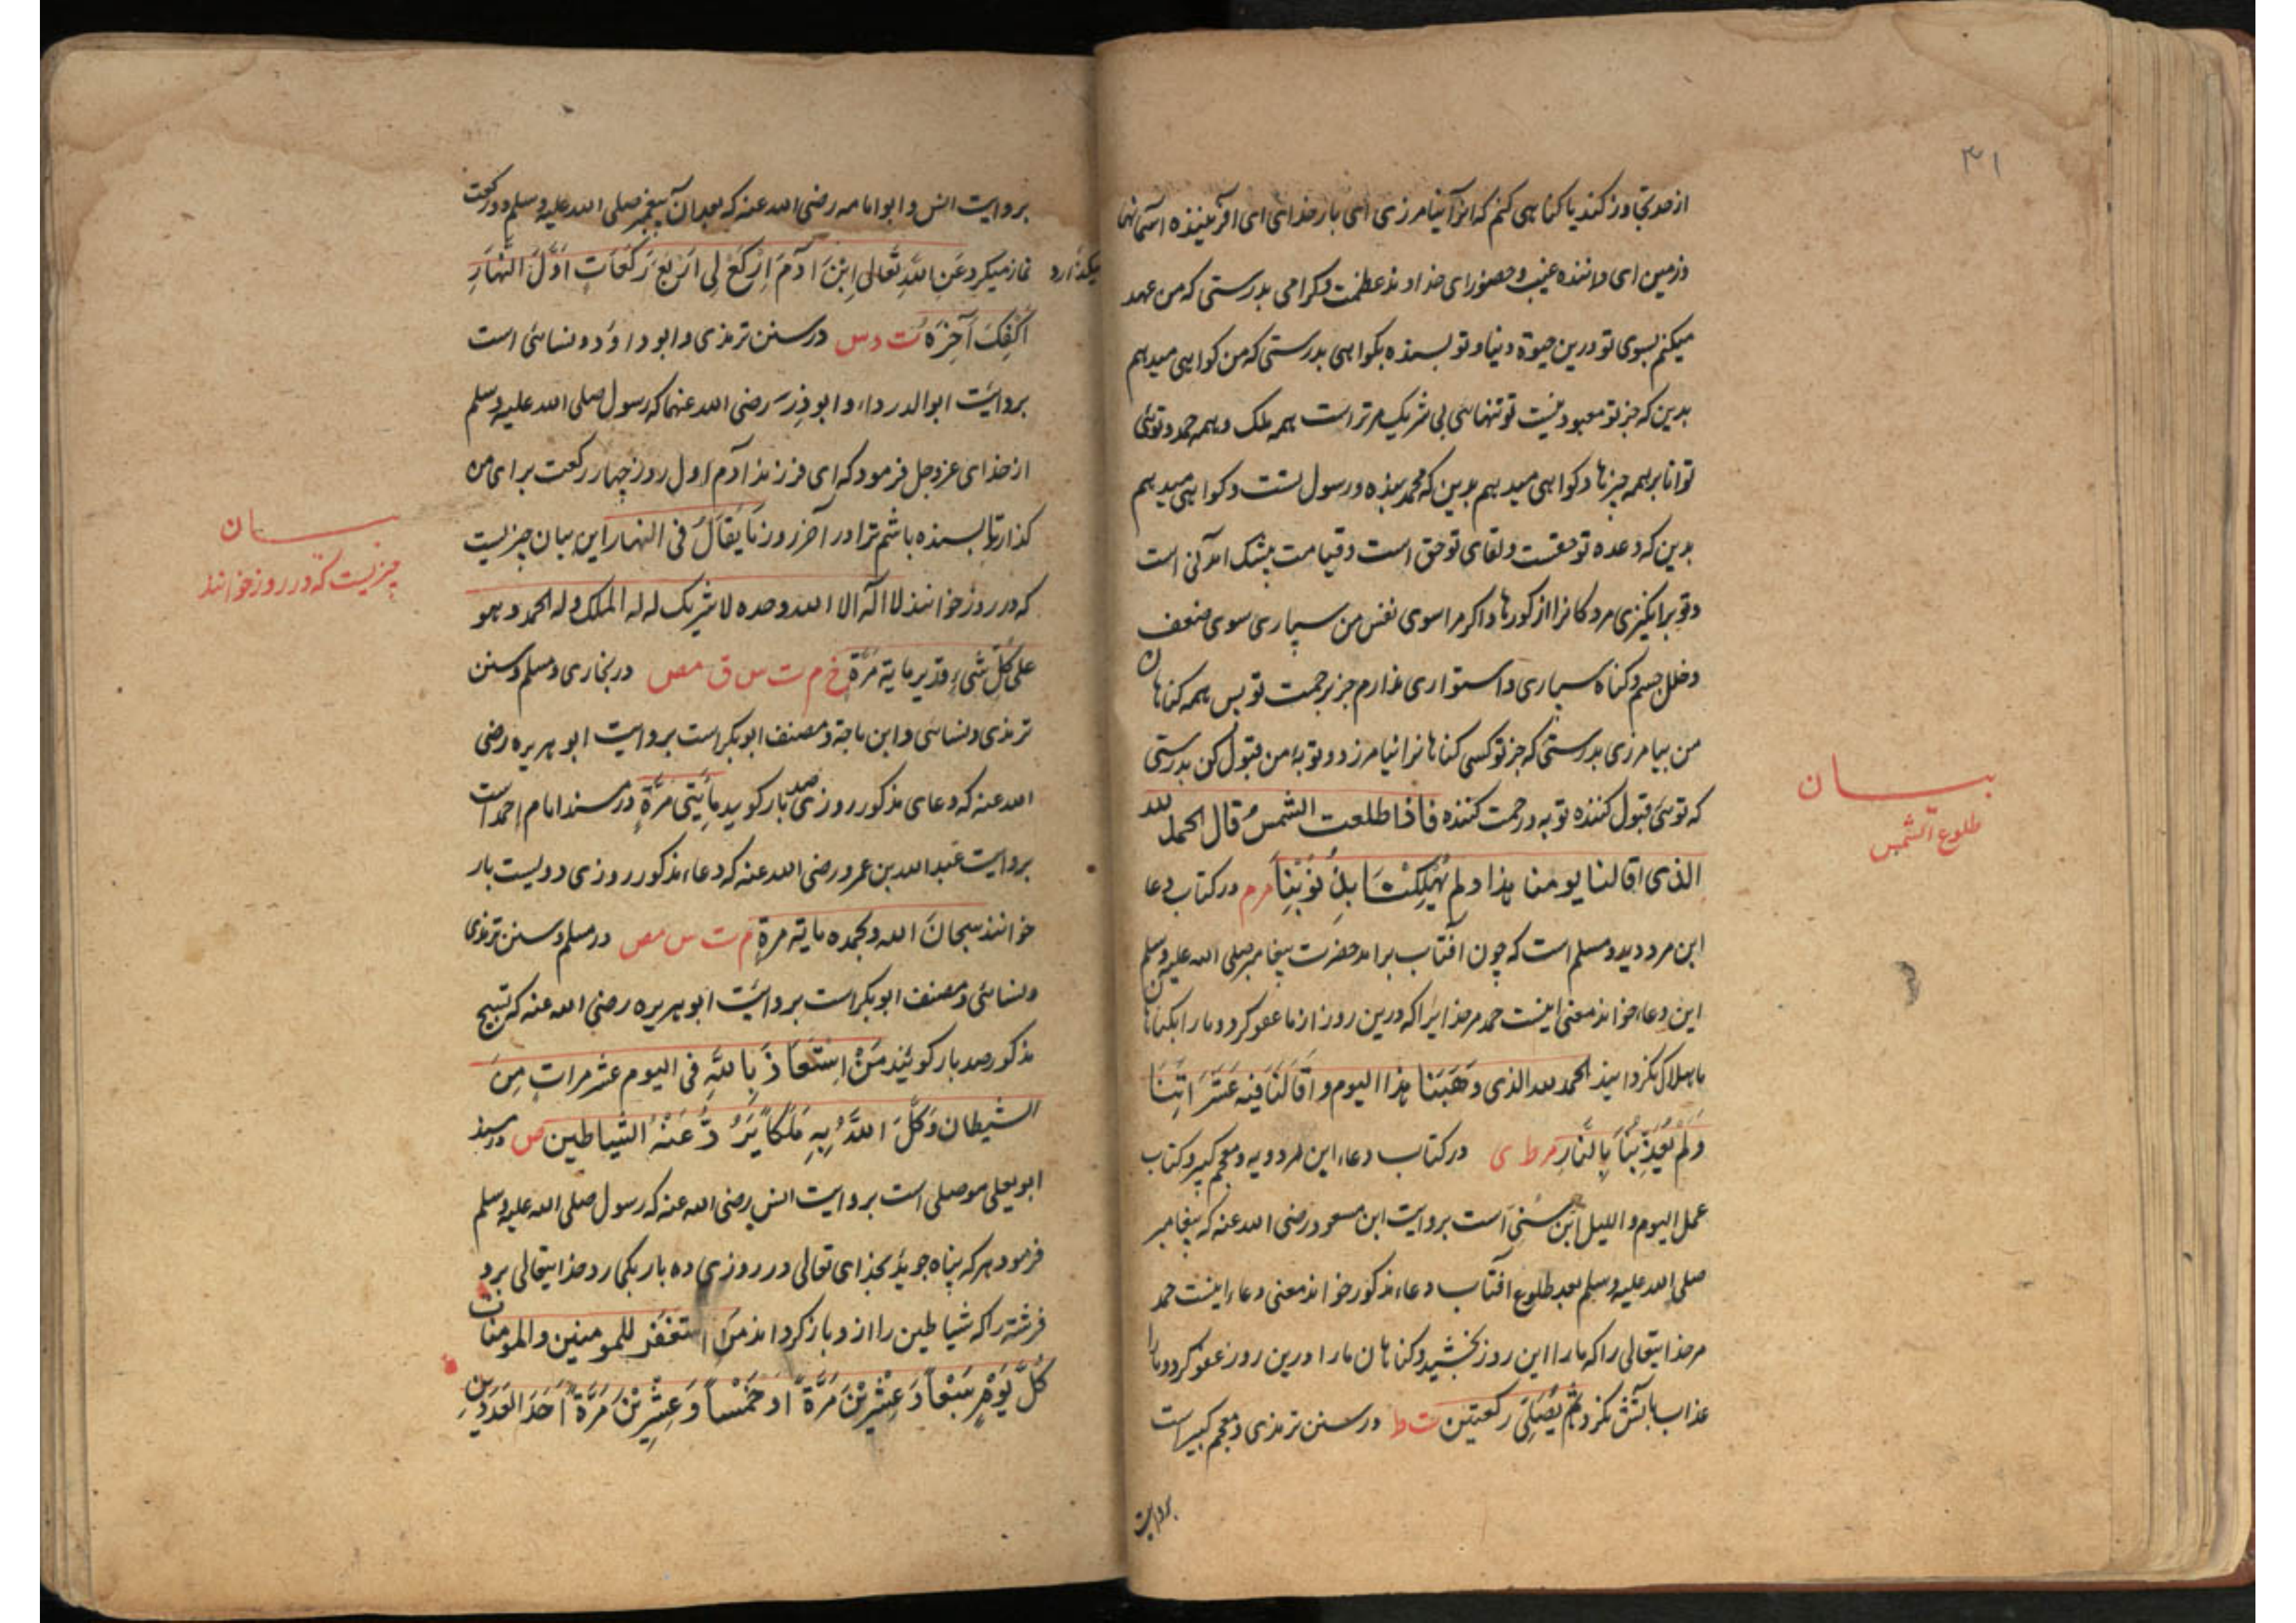 ۳۱
از حد تجاوز کند یا کناهی کنم که انرا نیامرزی ای بار خدای ای افریننده اسمانها
و زمین ای داننده غیب و حضور ای خداوند عظمت و کرامی بدرستی که من عهد
میکنم بسوی تو درین حیوة دنیا و تو بسنده بکواهی بدرستی که من کواهی میدهم
بدین که جز تو معبود نیست تو تنهائی بی شریک مر تراست همه ملک و همه حمد و توئی
توانا بر همه چیزها و کواهی میدهم بدین که محمد بنده و رسول تست و کواهی میدهم
بدین که وعده تو حقست و لقای تو حق است و قیامت بیشک امدنی است
و تو برانکیزی مردکانرا از کورها و اکر مرا سوی نفس من سپاری سوی ضعف
و خلل جسم و کناه سپاری و استواری ندارم جز برحمت تو پس همه کناهان
من بیامرزی بدرستی که جز تو کسی کناهانرا نیامرزد و توبه من قبول کن بدرستی
که توئی قبول کننده توبه و رحمت کننده فاذا طلعت الشمس قال الحمد لله
بیان
طلوع الشمس
الذی اقالنا یومنا هذا و لم یُهلِکْنَا بِذُنُوبِنَا مو م در کتاب دعا
ابن مردویه و مسلم است که چون آفتاب براید حضرت پیغامبر صلی الله علیه وسلم
این دعا خواند معنی اینست حمد مر خدایرا که درین روز از ما عفو کرد و ما را بکناهان
ما هلاک نکردانید الحمد لله الذی وَهَبَنَا هذا الیوم و اَقَالَنَا فیه عَثَرَاتِنَا
وَلَمْ یُعَذِّبْنَا بِالنَّارِ مو ط ی در کتاب دعاء ابن مردویه و معجم کبیر و کتاب
عمل الیوم و اللیل ابن سُنی است بروایت ابن مسعود رضی الله عنه که پیغامبر
صلی الله علیه وسلم بعد طلوع آفتاب دعاء مذکور خواند معنی دعا اینست حمد
مر خدایتعالی را که ما را این روز بخشید و کناهان ما را درین روز عفو کرد و ما را
عذاب بآتش نکرد ثُمَّ یُصَلِّی رکعتین ت ط در سنن ترمذی و معجم کبیر است
بروایت
بروایت انس و ابو امامه رضی الله عنه که بعد ان پیغمبر صلی الله علیه وسلم دو رکعت
نماز میکرد عَنِ اللهِ تَعَالی اِبْنَ آدَمَ اِرْکَعْ لِی اَرْبَعَ رَکَعَاتٍ اَوَّلَ النَّهَارِ
میکذارد
اَکْفِکَ آخِرَهُ ت د س در سنن ترمذی و ابو داؤد و نسائی است
بروایت ابو الدرداء و ابو ذر رضی الله عنهما که رسول صلی الله علیه وسلم
از خدای عز و جل فرمود که ای فرزند آدم اول روز چهار رکعت برای من
کذار تا بسنده باشم ترا در آخر روز مَا یُقَالُ فی النهار این بیان چیزیست
بیان
چیزیست که در روز خوانند
که در روز خوانند لا اله الا الله وحده لا شریک له له الملک و له الحمد و هو
علی کُلِّ شَیءٍ قدیر مایة مَرَّةٍ خ م ت س ق مص در بخاری و مسلم و سنن
ترمذی و نسائی و ابن ماجة و مصنف ابو بکر است بروایت ابو هریره رضی
الله عنه که دعای مذکور روزی صد بار کوید مِأَیَتَی مَرَّةٍ در مسند امام احمد است
بروایت عبد الله بن عمرو رضی الله عنه که دعاء مذکور روزی دویست بار
خوانند سبحان الله و بحمده مایة مرةٍ م ت س مص در مسلم و سنن ترمذی
و نسائی و مصنف ابو بکر است بروایت ابو هریره رضی الله عنه که تسبیح
مذکور صد بار کویند مَنْ اِسْتَعَاذَ بِاللهِ فی الیوم عشر مراتٍ مِنَ
الشیطان وَکَّلَ اللهُ بِهِ مَلَکاً یَرُدُّ عَنْهُ الشیاطین ص در مسند
ابو یعلی موصلی است بروایت انس رضی الله عنه که رسول صلی الله علیه وسلم
فرمود هر که پناه جوید بخدای تعالی در روزی ده بار بکمارد خدایتعالی برو
فرشته را که شیاطین را از و باز کرداند مَنْ استغفر للمومنین و المومنات
کُلَّ یَوْمٍ سَبْعاً وَعِشْرِیْنَ مَرَّةً اَوْ خَمْساً وَعِشْرِیْنَ مَرَّةً اَحَدَ العَدَدَیْنِ